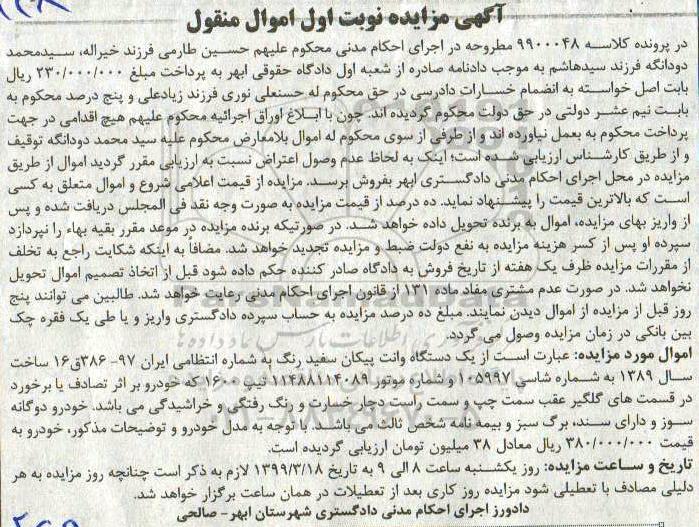 آگهی مزایده نوبت اول اموال منقول
در پرونده کلاسه 9900048 مطروحه در اجرای احکام مدنی محکوم علیهم حسین طارمی فرزند خیراله، سیدمحمد
دودانگه فرزند سیدهاشم به موجب دادنامه صادره از شعبه اول دادگاه حقوقی ابهر به پرداخت مبلغ 230/000/000 ریال
بابت اصل خواسته به انضمام خسارات دادرسی در حق محکوم له حسنعلی نوری فرزند زیادعلی و پنج درصد محکوم به
بابت نیم عشر دولتی در حق دولت محکوم گردیده اند. چون با ابلاغ اوراق اجرائیه محکوم علیهم هیچ اقدامی در جهت
پرداخت محکوم به بعمل نیاورده اند و از طرفی از سوی محکوم له اموال بلامعارض محکوم علیه سید محمد دودانگه توقیف
و از طریق کارشناس ارزیابی شده است؛ اینک به لحاظ عدم وصول اعتراض نسبت به ارزیابی مقرر گردید اموال از طریق
مزایده در محل اجرای احکام مدنی دادگستری ابهر بفروش برسد. مزایده از قیمت اعلامی شروع و اموال متعلق به کسی
است که بالاترین قیمت را پیشنهاد نماید. ده درصد از قیمت مزایده به صورت وجه نقد فی المجلس دریافت شده و پس
از واریز بهای مزایده، اموال به برنده تحویل داده خواهد شد. در صورتیکه برنده مزایده در موعد مقرر بقیه بهاء را نپردازد
سپرده او پس از کسر هزینه مزایده به نفع دولت ضبط و مزایده تجدید خواهد شد. مضافاً به اینکه شکایت راجع به تخلف
از مقررات مزایده ظرف یک هفته از تاریخ فروش به دادگاه صادر کننده حکم داده شود قبل از اتخاذ تصمیم اموال تحویل
نخواهد شد. در صورت عدم مشتری مفاد ماده 131 از قانون اجرای احکام مدنی رعایت خواهد شد. طالبین می توانند پنج
روز قبل از مزایده از اموال دیدن نمایند. مبلغ ده درصد مزایده به حساب سپرده دادگستری واریز و یا طی یک فقره چک
بین بانکی در زمان مزایده وصول می گردد.
اموال مورد مزایده: عبارت است از یک دستگاه وانت پیکان سفید رنگ به شماره انتظامی ایران 97- 386ق16 ساخت
سال 1389 به شماره شاسی 105997 و شماره موتور 11488114089 تیپ 1600 که خودرو بر اثر تصادف یا برخورد
در قسمت های گلگیر عقب سمت چپ و سمت راست دچار خسارت و رنگ رفتگی و خراشیدگی می باشد. خودرو دوگانه
سوز و دارای سند، برگ سبز و بیمه نامه شخص ثالث می باشد. با توجه به مدل خودرو و توضیحات مذکور، خودرو به
قیمت 380/000/000 ریال معادل 38 میلیون تومان ارزیابی گردیده است.
تاریخ و ساعت مزایده: روز یکشنبه ساعت 8 الی 9 به تاریخ 1399/3/18 لازم به ذکر است چنانچه روز مزایده به هر
دلیلی مصادف با تعطیلی شود مزایده روز کاری بعد از تعطیلات در همان ساعت برگزار خواهد شد.
دادورز اجرای احکام مدنی دادگستری شهرستان ابهر- صالحی